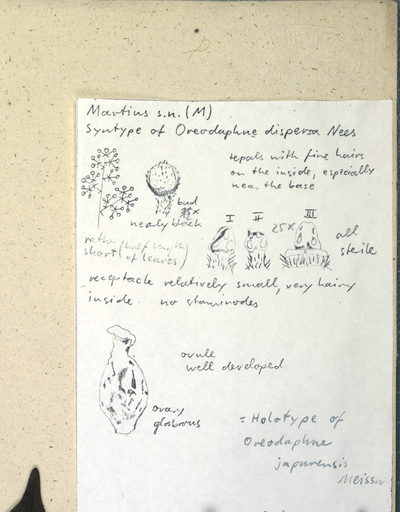 Martius s.n. (M)
Syntype of Oreodaphne dispersa Nees
tepals with fine hairs
on the inside, especially
near the base
bud
nearly black
I II III
25x
all
sterile
rather (half length
short (of leaves)
receptacle relatively small, very hairy
inside. no staminodes
ovule
well developed
ovary
glabrous
= Holotype of
Oreodaphne
japurensis
Meissn